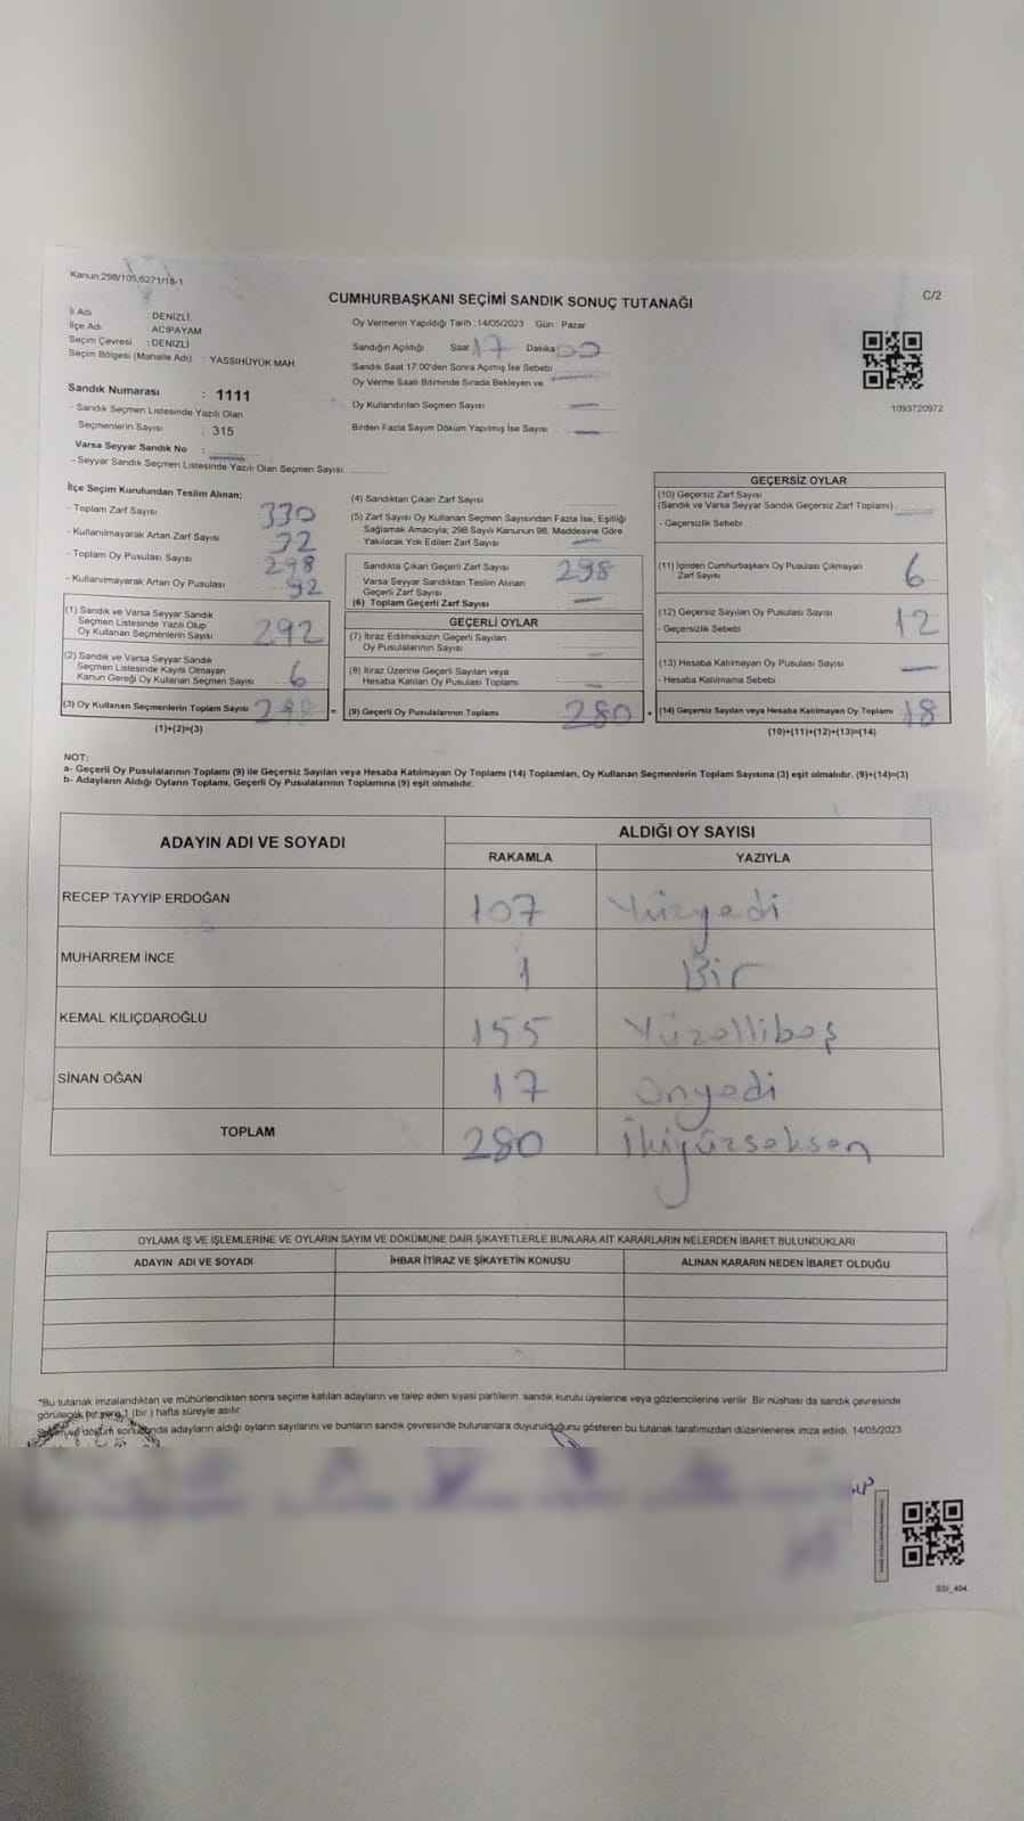 Kanun:298/105,6271/18-1
C/2
CUMHURBAŞKANI SEÇİMİ SANDIK SONUÇ TUTANAĞI
İl Adı : DENİZLİ
İlçe Adı : ACIPAYAM
Seçim Çevresi : DENİZLİ
Seçim Bölgesi (Mahalle Adı) : YASSIHÜYÜK MAH.
Sandık Numarası : 1111
- Sandık Seçmen Listesinde Yazılı Olan
Seçmenlerin Sayısı : 315
Varsa Seyyar Sandık No :
- Seyyar Sandık Seçmen Listesinde Yazılı Olan Seçmen Sayısı
Oy Vermenin Yapıldığı Tarih :14/05/2023 Gün : Pazar
Sandığın Açıldığı Saat 17 Dakika 00
Sandık Saat 17:00'den Sonra Açılmış İse Sebebi
Oy Verme Saati Bitiminde Sırada Bekleyen ve
Oy Kullandırılan Seçmen Sayısı
Birden Fazla Sayım Döküm Yapılmış İse Sayısı
1093720972
İlçe Seçim Kurulundan Teslim Alınan;
- Toplam Zarf Sayısı 330
- Kullanılmayarak Artan Zarf Sayısı 32
- Toplam Oy Pusulası Sayısı 298
- Kullanılmayarak Artan Oy Pusulası
(1) Sandık ve Varsa Seyyar Sandık
Seçmen Listesinde Yazılı Olup
Oy Kullanan Seçmenlerin Sayısı 292
(2) Sandık ve Varsa Seyyar Sandık
Seçmen Listesinde Kayıtlı Olmayan
Kanun Gereği Oy Kullanan Seçmen Sayısı 6
(3) Oy Kullanan Seçmenlerin Toplam Sayısı 298
(1)+(2)=(3)
(4) Sandıktan Çıkan Zarf Sayısı
(5) Zarf Sayısı Oy Kullanan Seçmen Sayısından Fazla İse, Eşitliği
Sağlamak Amacıyla; 298 Sayılı Kanunun 98. Maddesine Göre
Yakılarak Yok Edilen Zarf Sayısı
Sandıkta Çıkan Geçerli Zarf Sayısı 298
Varsa Seyyar Sandıktan Teslim Alınan
Geçerli Zarf Sayısı
(6) Toplam Geçerli Zarf Sayısı
GEÇERLİ OYLAR
(7) İtiraz Edilmeksizin Geçerli Sayılan
Oy Pusulalarının Sayısı
(8) İtiraz Üzerine Geçerli Sayılan veya
Hesaba Katılan Oy Pusulası Toplamı
= (9) Geçerli Oy Pusulalarının Toplamı 280
GEÇERSİZ OYLAR
(10) Geçersiz Zarf Sayısı
(Sandık ve Varsa Seyyar Sandık Geçersiz Zarf Toplamı)
- Geçersizlik Sebebi
(11) İçinden Cumhurbaşkanı Oy Pusulası Çıkmayan
Zarf Sayısı 6
(12) Geçersiz Sayılan Oy Pusulası Sayısı 12
- Geçersizlik Sebebi
(13) Hesaba Katılmayan Oy Pusulası Sayısı
- Hesaba Katılmama Sebebi
+ (14) Geçersiz Sayılan veya Hesaba Katılmayan Oy Toplamı 18
(10)+(11)+(12)+(13)=(14)
NOT:
a- Geçerli Oy Pusulalarının Toplamı (9) ile Geçersiz Sayılan veya Hesaba Katılmayan Oy Toplamı (14) Toplamları, Oy Kullanan Seçmenlerin Toplam Sayısına (3) eşit olmalıdır. (9)+(14)=(3)
b- Adayların Aldığı Oyların Toplamı, Geçerli Oy Pusulalarının Toplamına (9) eşit olmalıdır.
ADAYIN ADI VE SOYADI
ALDIĞI OY SAYISI
RAKAMLA YAZIYLA
RECEP TAYYİP ERDOĞAN 107 Yüzyedi
MUHARREM İNCE 1 Bir
KEMAL KILIÇDAROĞLU 155 Yüzellibeş
SİNAN OĞAN 17 Onyedi
TOPLAM 280 İkiyüzseksen
OYLAMA İŞ VE İŞLEMLERİNE VE OYLARIN SAYIM VE DÖKÜMÜNE DAİR ŞİKAYETLERLE BUNLARA AİT KARARLARIN NELERDEN İBARET BULUNDUKLARI
ADAYIN ADI VE SOYADI İHBAR İTİRAZ VE ŞİKAYETİN KONUSU ALINAN KARARIN NEDEN İBARET OLDUĞU
*Bu tutanak imzalandıktan ve mühürlendikten sonra seçime katılan adayların ve talep eden siyasi partilerin sandık kurulu üyelerine veya gözlemcilerine verilir. Bir nüshası da sandık çevresinde
görülecek bir yere 1 (bir) hafta süreyle asılır.
döküm sonucunda adayların aldığı oyların sayılarını ve bunların sandık çevresinde bulunanlara duyurulduğunu gösteren bu tutanak tarafımızdan düzenlenerek imza edildi. 14/05/2023
SSI_404